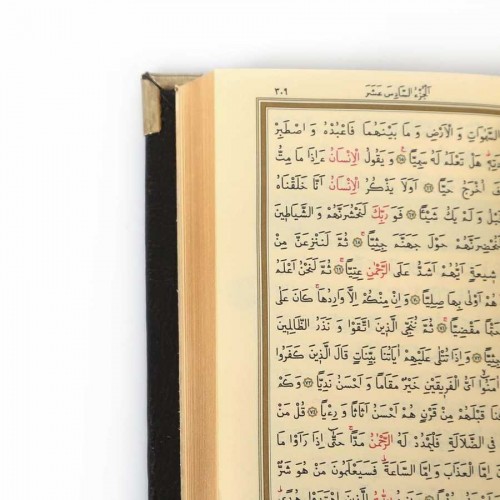 ٣٠٩ اَلْجُزْءُ السَّادِسَ عَشَرَ
السَّمٰوَاتِ وَ الْاَرْضِ وَ مَا بَيْنَهُمَا فَاعْبُدْهُ وَ اصْطَبِرْ
هَلْ تَعْلَمُ لَهُ سَمِيًّا ﴿٦٥﴾ وَ يَقُولُ الْاِنْسَانُ ءَاِذَا مَا مِتُّ
اُخْرَجُ حَيًّا ﴿٦٦﴾ اَوَلَا يَذْكُرُ الْاِنْسَانُ اَنَّا خَلَقْنَاهُ
وَ لَمْ يَكُ شَيْئًا ﴿٦٧﴾ فَوَ رَبِّكَ لَنَحْشُرَنَّهُمْ وَ الشَّيَاطِينَ
لَنُحْضِرَنَّهُمْ حَوْلَ جَهَنَّمَ جِثِيًّا ﴿٦٨﴾ ثُمَّ لَنَنْزِعَنَّ مِنْ
شِيعَةٍ اَيُّهُمْ اَشَدُّ عَلَى الرَّحْمٰنِ عِتِيًّا ﴿٦٩﴾ ثُمَّ لَنَحْنُ اَعْلَمُ
هُمْ اَوْلٰى بِهَا صِلِيًّا ﴿٧٠﴾ وَ اِنْ مِنْكُمْ اِلَّا وَارِدُهَا كَانَ عَلٰى
حَتْمًا مَقْضِيًّا ﴿٧١﴾ ثُمَّ نُنَجِّي الَّذِينَ اتَّقَوْا وَ نَذَرُ الظَّالِمِينَ
جِثِيًّا ﴿٧٢﴾ وَ اِذَا تُتْلٰى عَلَيْهِمْ اٰيَاتُنَا بَيِّنَاتٍ قَالَ الَّذِينَ كَفَرُوا
اٰمَنُوا اَىُّ الْفَرِيقَيْنِ خَيْرٌ مَقَامًا وَ اَحْسَنُ نَدِيًّا ﴿٧٣﴾ وَ كَمْ
قَبْلَهُمْ مِنْ قَرْنٍ هُمْ اَحْسَنُ اَثَاثًا وَ رِءْيًا ﴿٧٤﴾ قُلْ مَنْ
فِي الضَّلَالَةِ فَلْيَمْدُدْ لَهُ الرَّحْمٰنُ مَدًّا حَتّٰى اِذَا رَاَوْا مَا
اِمَّا الْعَذَابَ وَ اِمَّا السَّاعَةَ فَسَيَعْلَمُونَ مَنْ هُوَ شَرٌّ